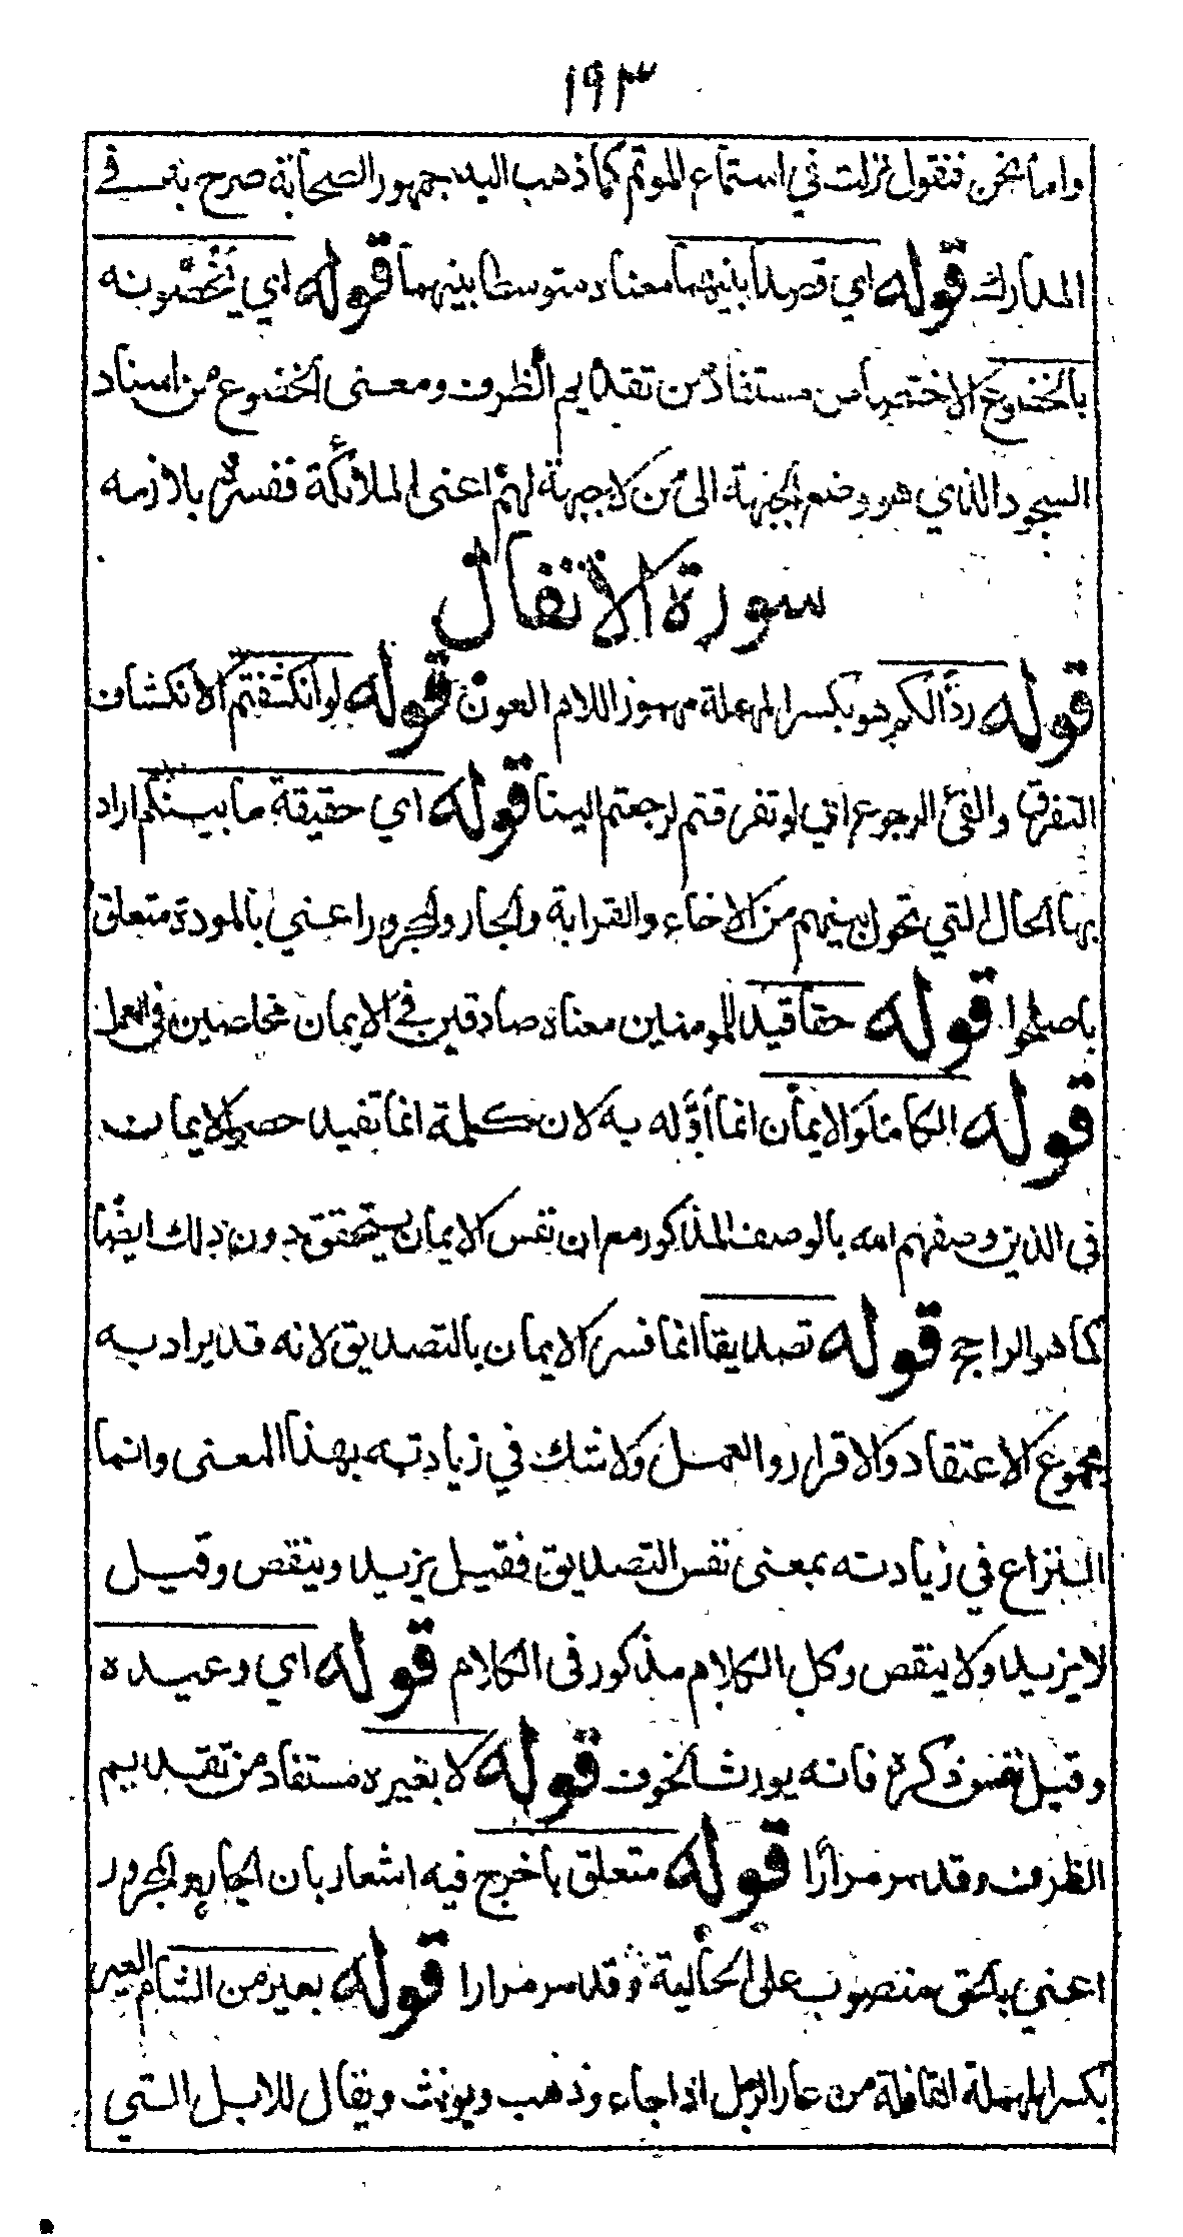 ١٩٣
واما نحن فنقول نزلت في استماع الموتم كما ذهب اليه جمهور الصحابة صرح به في
المدارك قوله اي قصدا بينهما معناه متوسطا بينهما قوله اي يخصونه
بالخضوع الاختصاص مستفاد من تقديم الظرف ومعنى الخضوع من اسناد
السجود الذي هو وضع الجبهة الى من لا جبهة لهم اعنى الملائكة ففسره بلازمه
سورة الانفال
قوله ردأ لكم هو بكسر المهملة مهموز اللام العون قوله لو انكشفتم الانكشاف
التفرق والفئ الرجوع اي لو تفرقتم لرجعتم الينا قوله اي حقيقة ما بينكم اراد
بها الحال التي تحول بينهم من الاخاء والقرابة والجار والمجرور اعني بالمودة متعلق
باصلحوا قوله حقا قيد للمومنين معناه صادقين في الايمان مخلصين في العمل
قوله الكاملو الايمان انما أوّله به لان كلمة انما تفيد حصر الايمان
فى الذين وصفهم الله بالوصف المذكور مع ان نفس الايمان يتحقق دون ذلك ايضًا
كما هو الراجح قوله تصديقا انما فسر الايمان بالتصديق لانه قد يراد به
مجموع الاعتقاد والاقرار والعمل ولا شك في زيادته بهذا المعنى وانما
النزاع في زيادته بمعنى نفس التصديق فقيل يزيد وينقص وقيل
لا يزيد ولا ينقص وكل الكلام مذكور فى الكلام قوله اي وعيده
وقيل نفس ذكره فانه يورث الخوف قوله لا بغيره مستفاد من تقديم
الظرف وقد مر مرارًا قوله متعلق باخرج فيه اشعار بان الجار والمجرور
اعني بالحق منصوب على الحالية وقد مر مرارا قوله بعير من الشام العير
بكسر المهملة القافلة من عار الرجل اذا جاء وذهب ويونث ويقال للابل التي